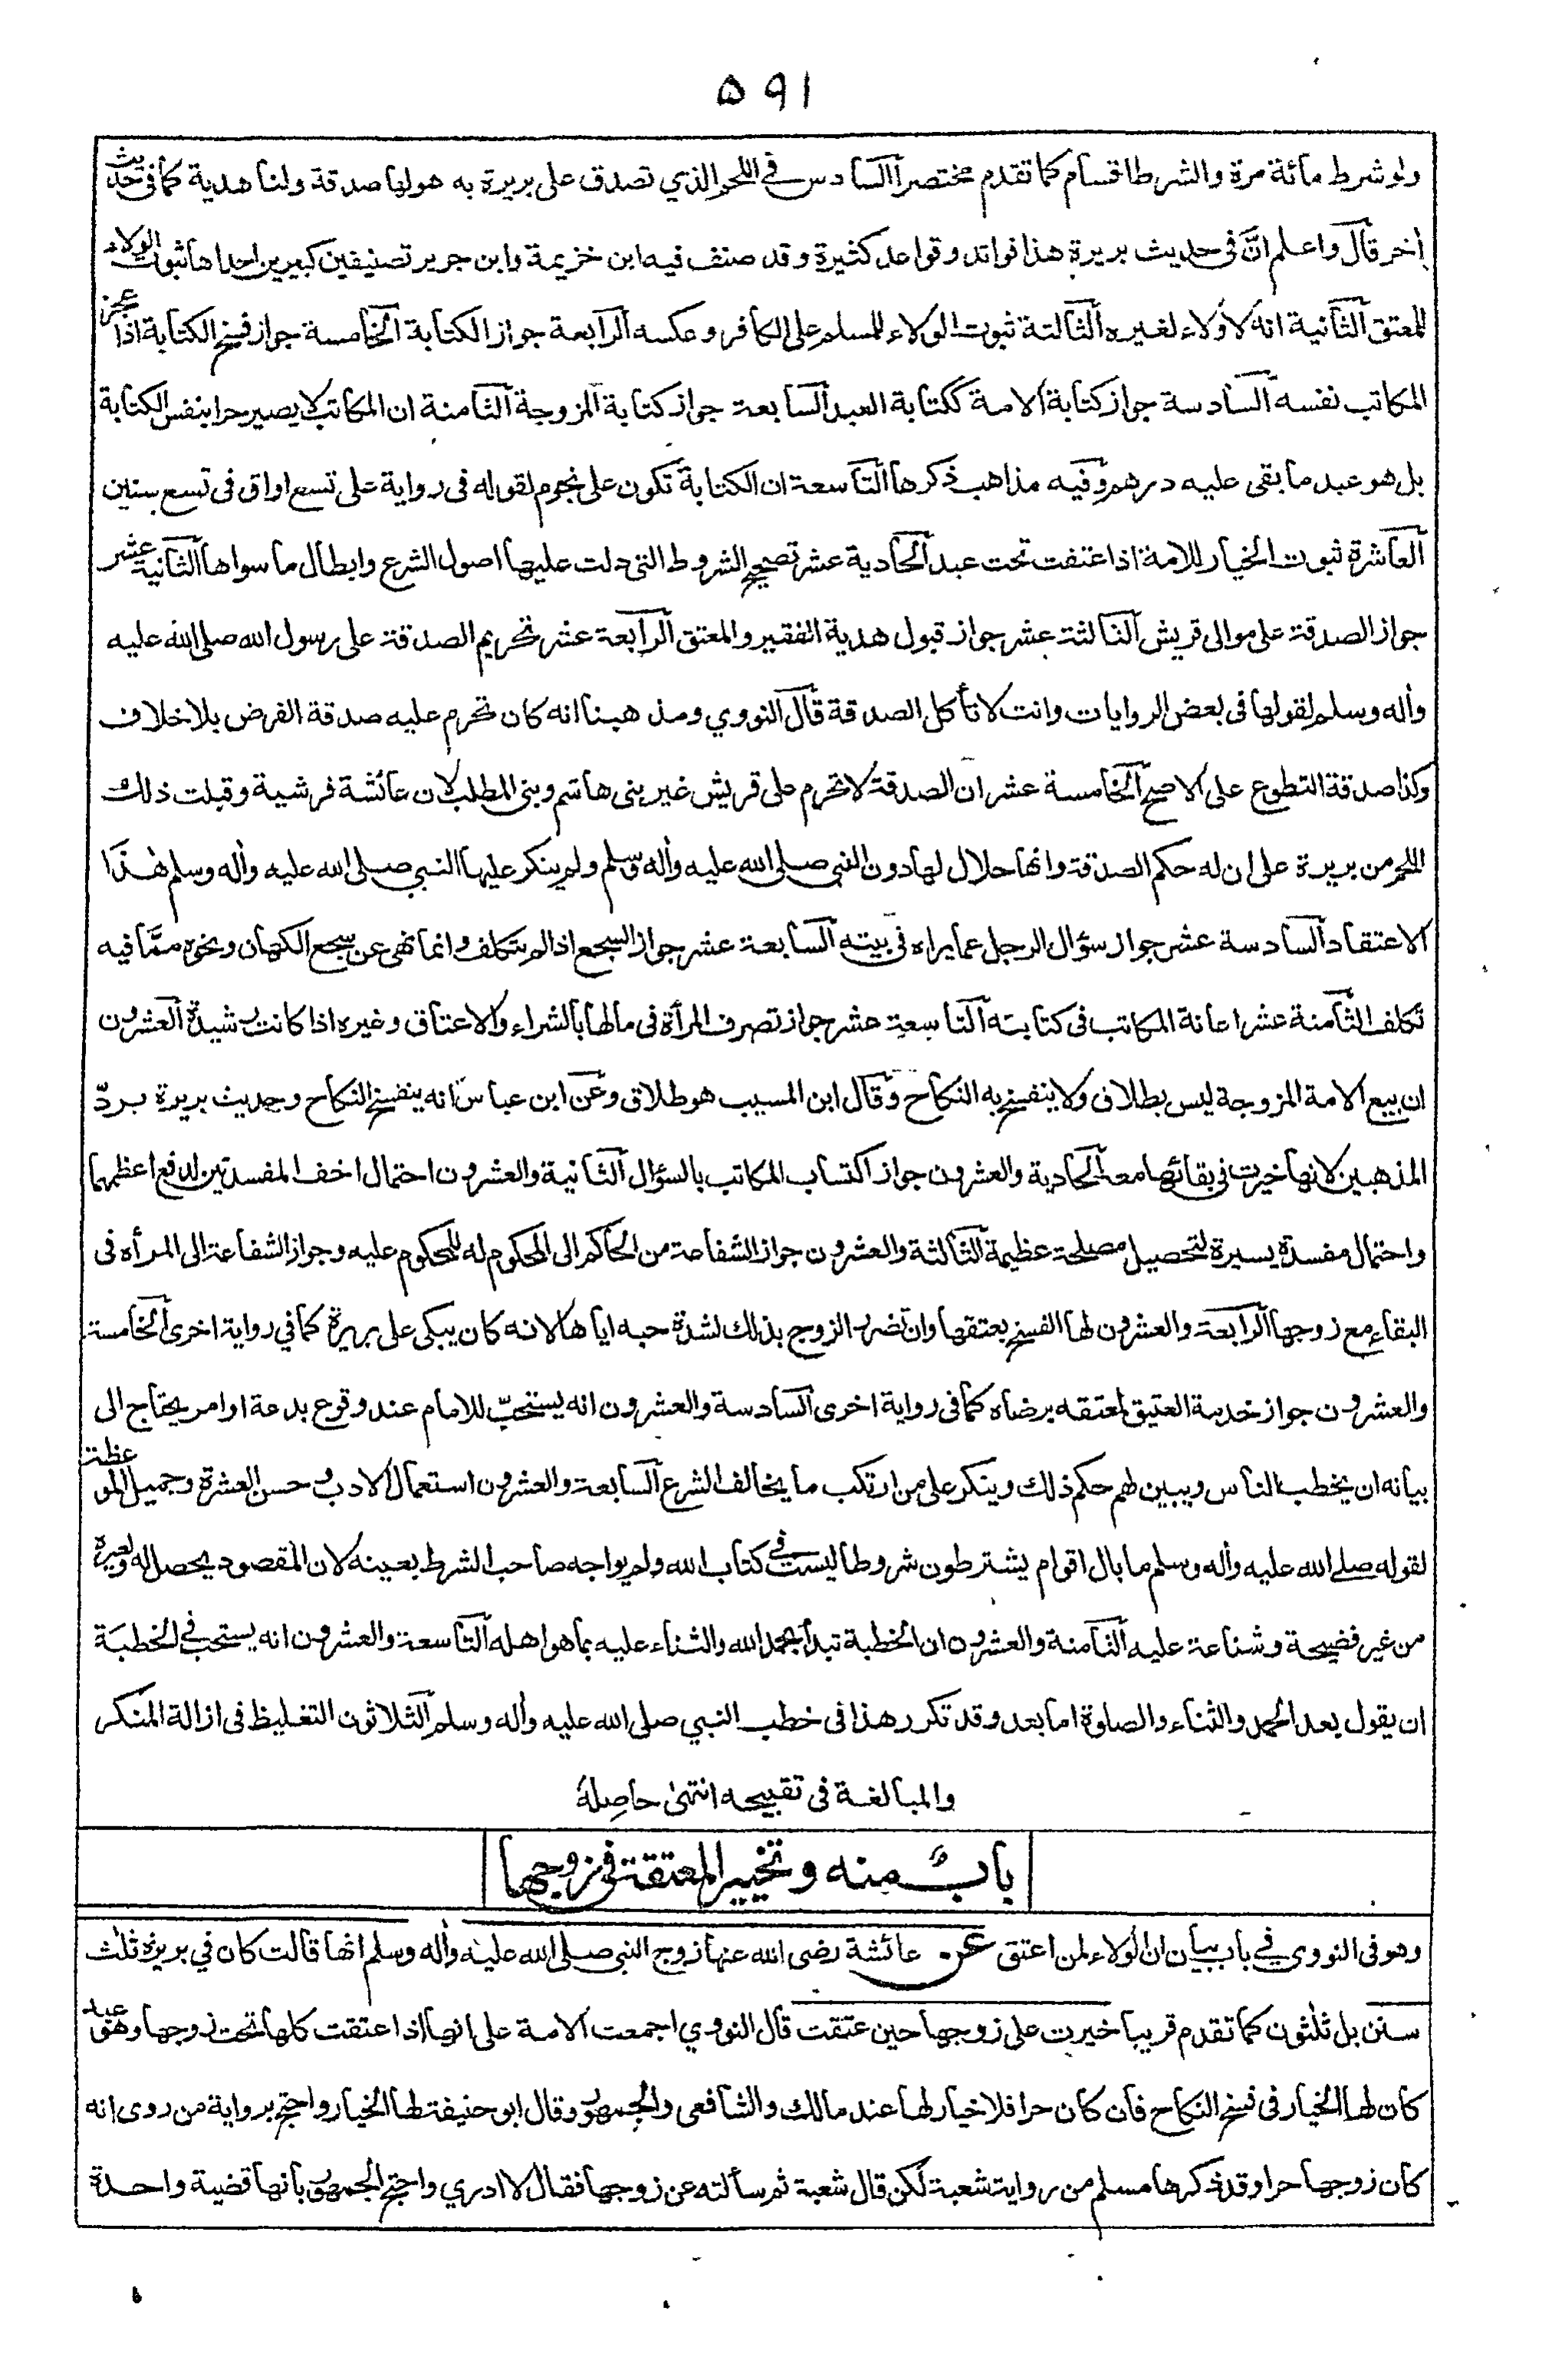 ٥٩١
ولو شرط مائة مرة والشرط اقسام كما تقدم مختصرا السادس في اللحم الذي تصدق على بريرة به هو لها صدقة ولنا هدية كما في حديث
اخر قال واعلم انّ فى حديث بريرة هذا فوائد وقواعد كثيرة وقد صنف فيه ابن خزيمة وابن جرير تصنيفين كبيرين احداها ثبوت الولاء
للمعتق الثانية انه لا ولاء لغيره الثالثة ثبوت الولاء للمسلم على الكافر وعكسه الرابعة جواز الكتابة الخامسة جواز فسخ الكتابة اذا عجز
المكاتب نفسه السادسة جواز كتابة الامة ككتابة العبد السابعة جواز كتابة المزوجة الثامنة ان المكاتب لا يصير حرا بنفس الكتابة
بل هو عبد ما بقى عليه درهم وفيه مذاهب ذكرها التاسعة ان الكتابة تكون على نجوم لقوله فى رواية على تسع اواق فى تسع سنين
العاشرة ثبوت الخيار للامة اذا عتقت تحت عبد الحادية عشر تصحيح الشروط التى دلت عليها اصول الشرع وابطال ما سواها الثانية عشر
جواز الصدقة على موالى قريش الثالثة عشر جواز قبول هدية الفقير والمعتق الرابعة عشر تحريم الصدقة على رسول الله صلى الله عليه
واله وسلم لقولها فى بعض الروايات وانت لا تأكل الصدقة قال النووي ومذهبنا انه كان تحرم عليه صدقة الفرض بلا خلاف
وكذا صدقة التطوع على الاصح الخامسة عشر ان الصدقة لا تحرم على قريش غير بنى هاشم وبنى المطلب لان عائشة قرشية وقبلت ذلك
اللحم من بريرة على ان له حكم الصدقة وانها حلال لها دون النبي صلى الله عليه واله وسلم ولم ينكر عليها النبي صلى الله عليه واله وسلم هٰذا
الاعتقاد السادسة عشر جواز سؤال الرجل عما يراه فى بيته السابعة عشر جواز السجع اذا لم يتكلف وانما نهى عن سجع الكهان ونحوه ممّا فيه
تكلف الثامنة عشر اعانة المكاتب فى كتابته التاسعة عشر جواز تصرف المرأة فى مالها بالشراء والاعتاق وغيره اذا كانت رشيدة العشرون
ان بيع الامة المزوجة ليس بطلاق ولا ينفسخ به النكاح وقال ابن المسيب هو طلاق وعن ابن عباس انه ينفسخ النكاح وحديث بريرة بردّ
المذهبين لانها خيرت فى بقائها معه الحادية والعشرون جواز اكتساب المكاتب بالسؤال الثانية والعشرون احتمال اخف المفسدتين لدفع اعظمهما
واحتمال مفسدة يسيرة لتحصيل مصلحة عظيمة الثالثة والعشرون جواز الشفاعة من الحاكم الى المحكوم له للمحكوم عليه وجواز الشفاعة الى المرأه فى
البقاء مع زوجها الرابعة والعشرون لها الفسخ بعتقها وان تضرر الزوج بذلك لشدة حبه اياها لانه كان يبكى على بريرة كما في رواية اخرى الخامسة
والعشرون جواز خدمة العتيق لمعتقه برضاه كما فى رواية اخرى السادسة والعشرون انه يستحبّ للامام عند وقوع بدعة او امر يحتاج الى
بيانه ان يخطب الناس ويبين لهم حكم ذلك وينكر على من ارتكب ما يخالف الشرع السابعة والعشرون استعمال الادب وحسن العشرة وجميل الموعظة
لقوله صلى الله عليه واله وسلم ما بال اقوام يشترطون شروطا ليست في كتاب الله ولم يواجه صاحب الشرط بعينه لان المقصود يحصل له ولغيره
من غير فضيحة وشناعة عليه الثامنة والعشرون ان الخطبة تبدأ بحمد الله والثناء عليه بما هو اهله التاسعة والعشرون انه يستحب في الخطبة
ان يقول بعد الحمد والثناء والصلوة اما بعد وقد تكرر هذا فى خطب النبي صلى الله عليه واله وسلم الثلاثون التغليظ فى ازالة المنكر
والمبالغة فى تقبيحه انتهىٰ حاصله
باب منه وتخيير المعتقة فى زوجها
وهو فى النووي في باب بيان ان الولاء لمن اعتق عن عائشة رضى الله عنها زوج النبى صلى الله عليه واله وسلم انها قالت كان في بريرة ثلٰث
سنن بل ثلٰثون كما تقدم قريبا خيرت على زوجها حين عتقت قال النووي اجمعت الامة على انها اذا عتقت كلها تحت زوجها وهو عبد
كان لها الخيار فى فسخ النكاح فان كان حرا فلا خيار لها عند مالك والشافعى والجمهور وقال ابو حنيفة لها الخيار واحتج برواية من روى انه
كان زوجها حرا وقد ذكرها مسلم من رواية شعبة لكن قال شعبة ثم سألته عن زوجها فقال لا ادري واحتج الجمهور بانها قضية واحدة